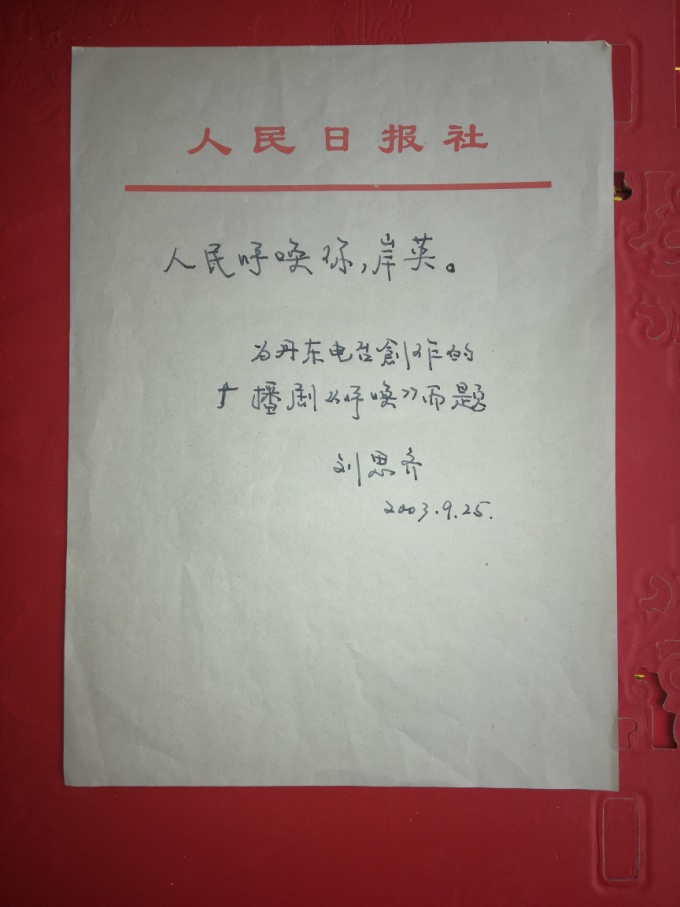 人民日报社
人民呼唤你,岸英。
为丹东电台創作的
广播剧《呼唤》而题
刘思齐
2003.9.25.